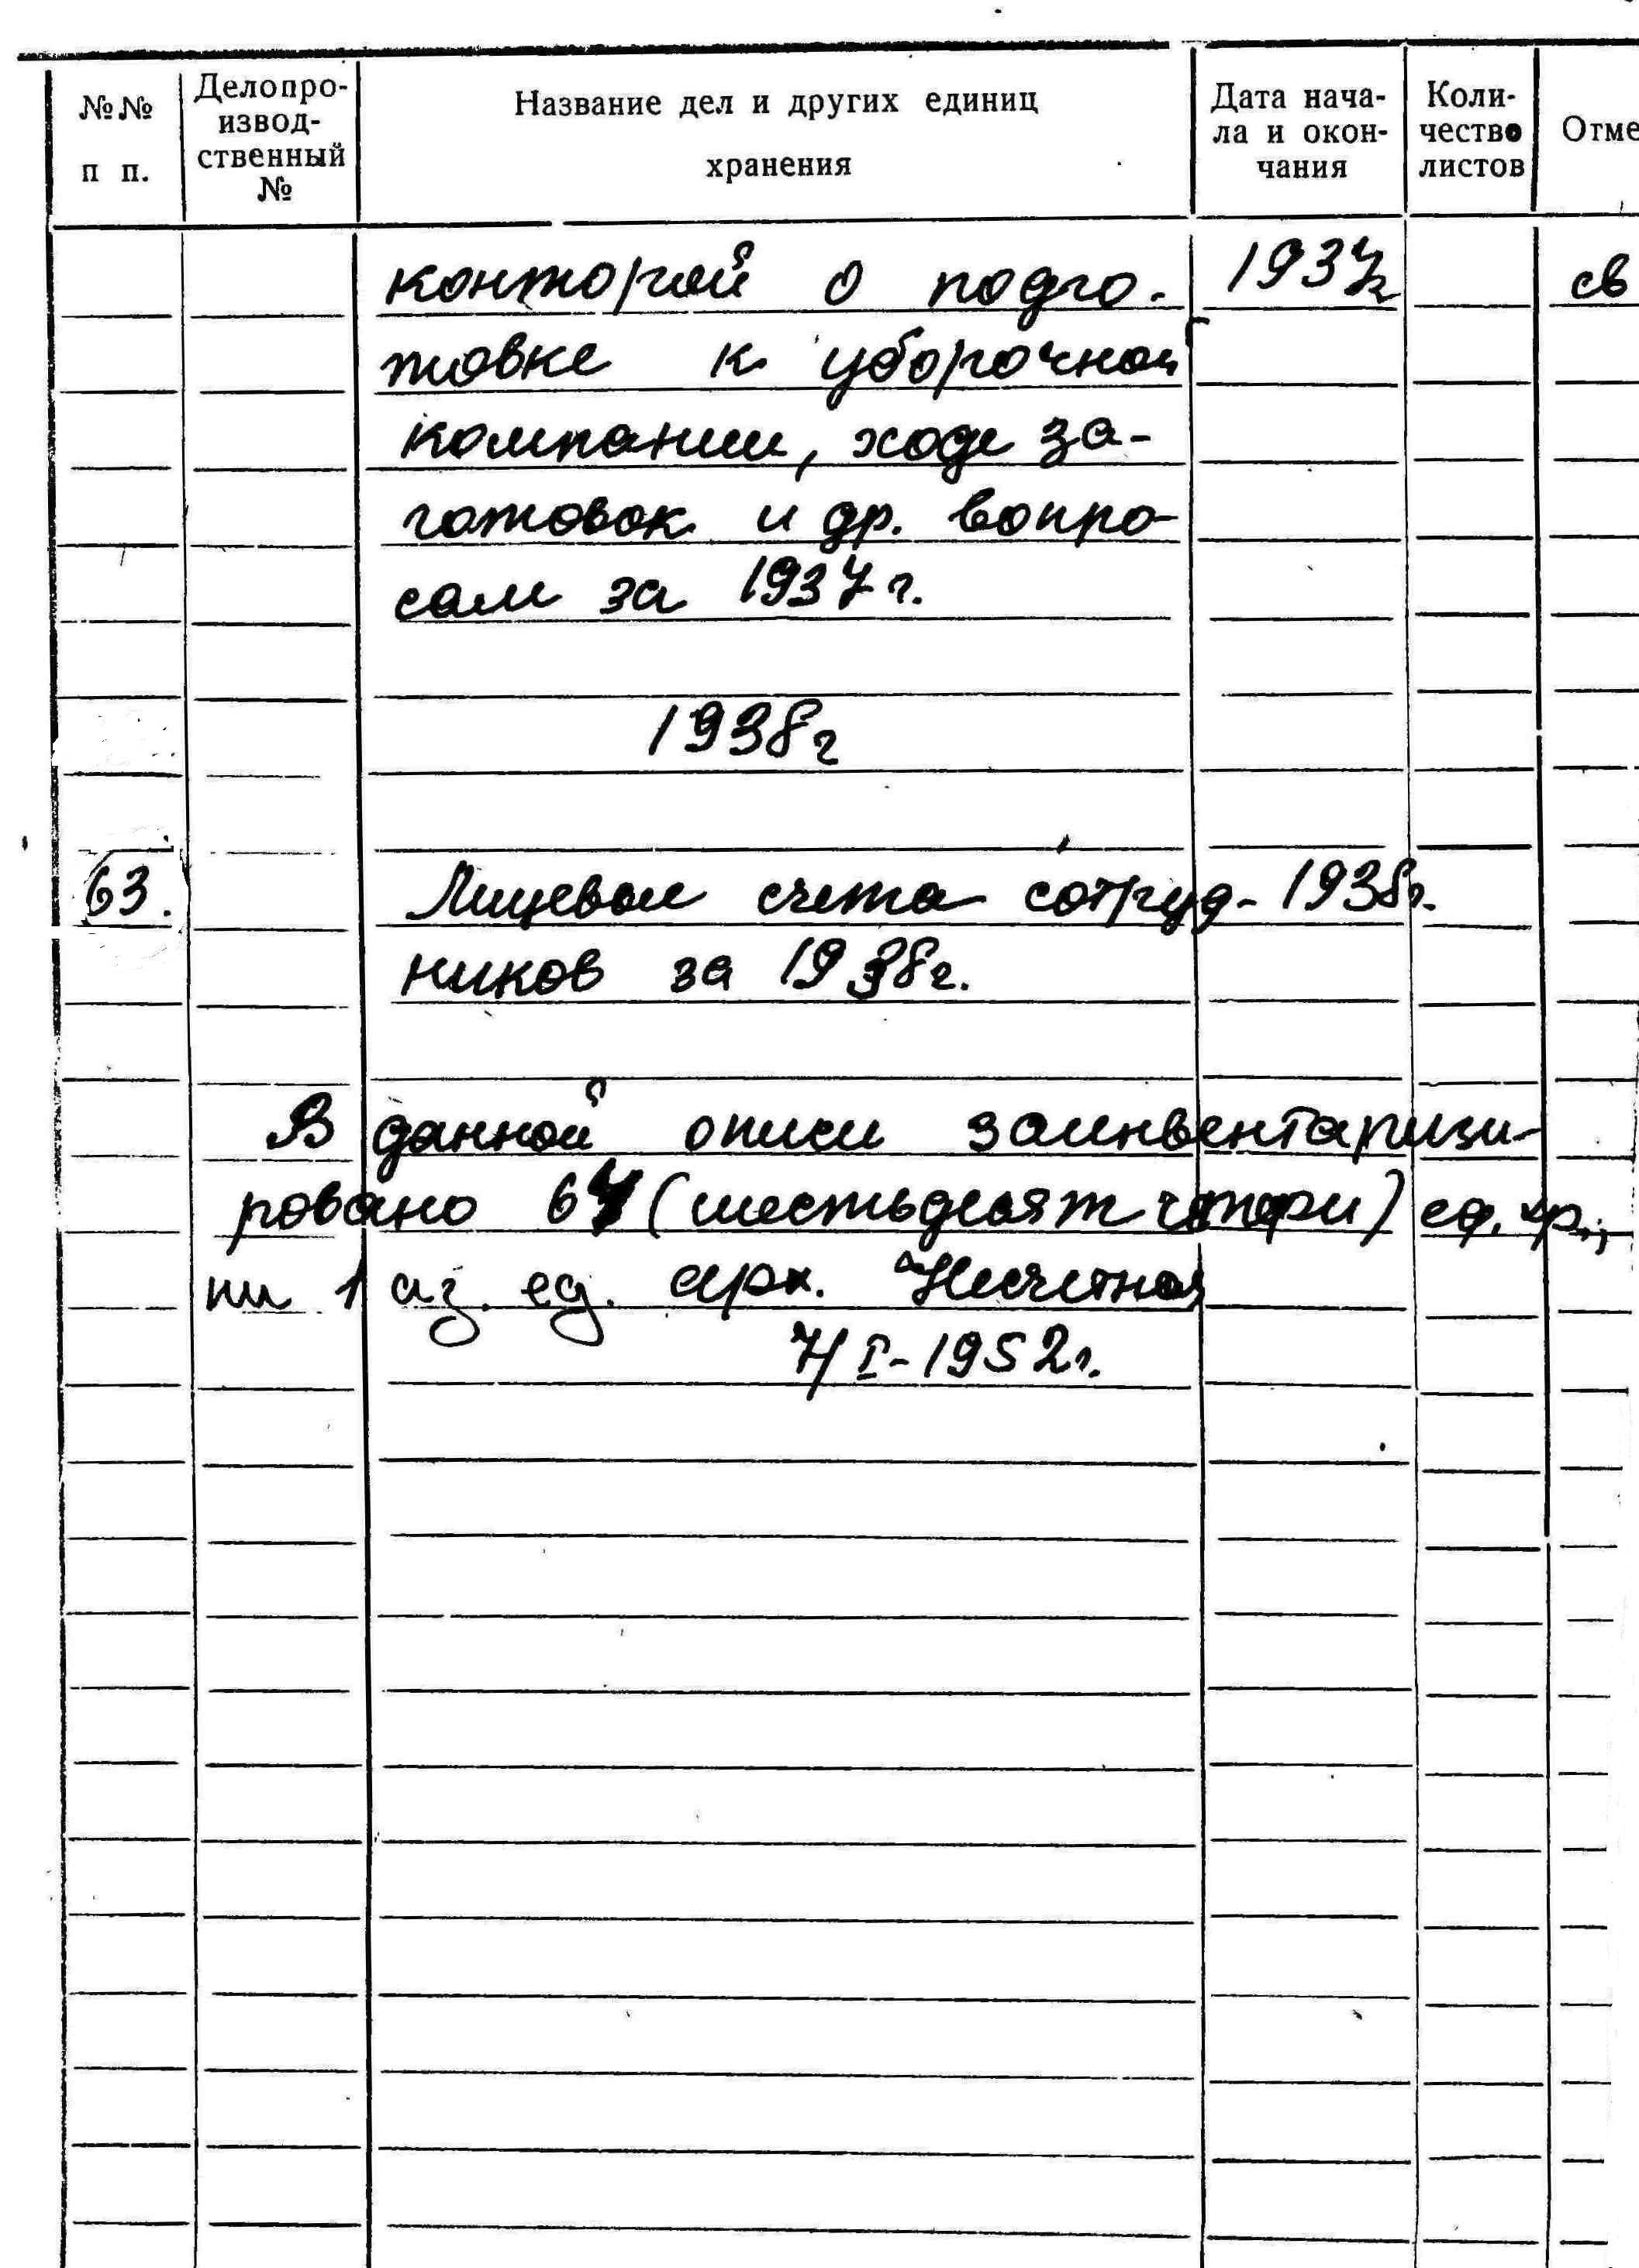 №№ п п.
Делопро-
извод-
ственный
№
Название дел и других единиц
хранения
Дата нача-
ла и окон-
чания
Коли-
чество
листов
Отме
конторой о подго- 1937г св
товке к уборочной
компании, ходе за-
готовок и др. вопро-
сам за 1937 г.
1938г
63. Лицевые счета сотруд- 1938г.
ников за 1938г.
В данной описи заинвентаризи-
ровано 64 (шестьдесят четыри) ед. хр.,
1 ед. арх.
7/I-1952г.